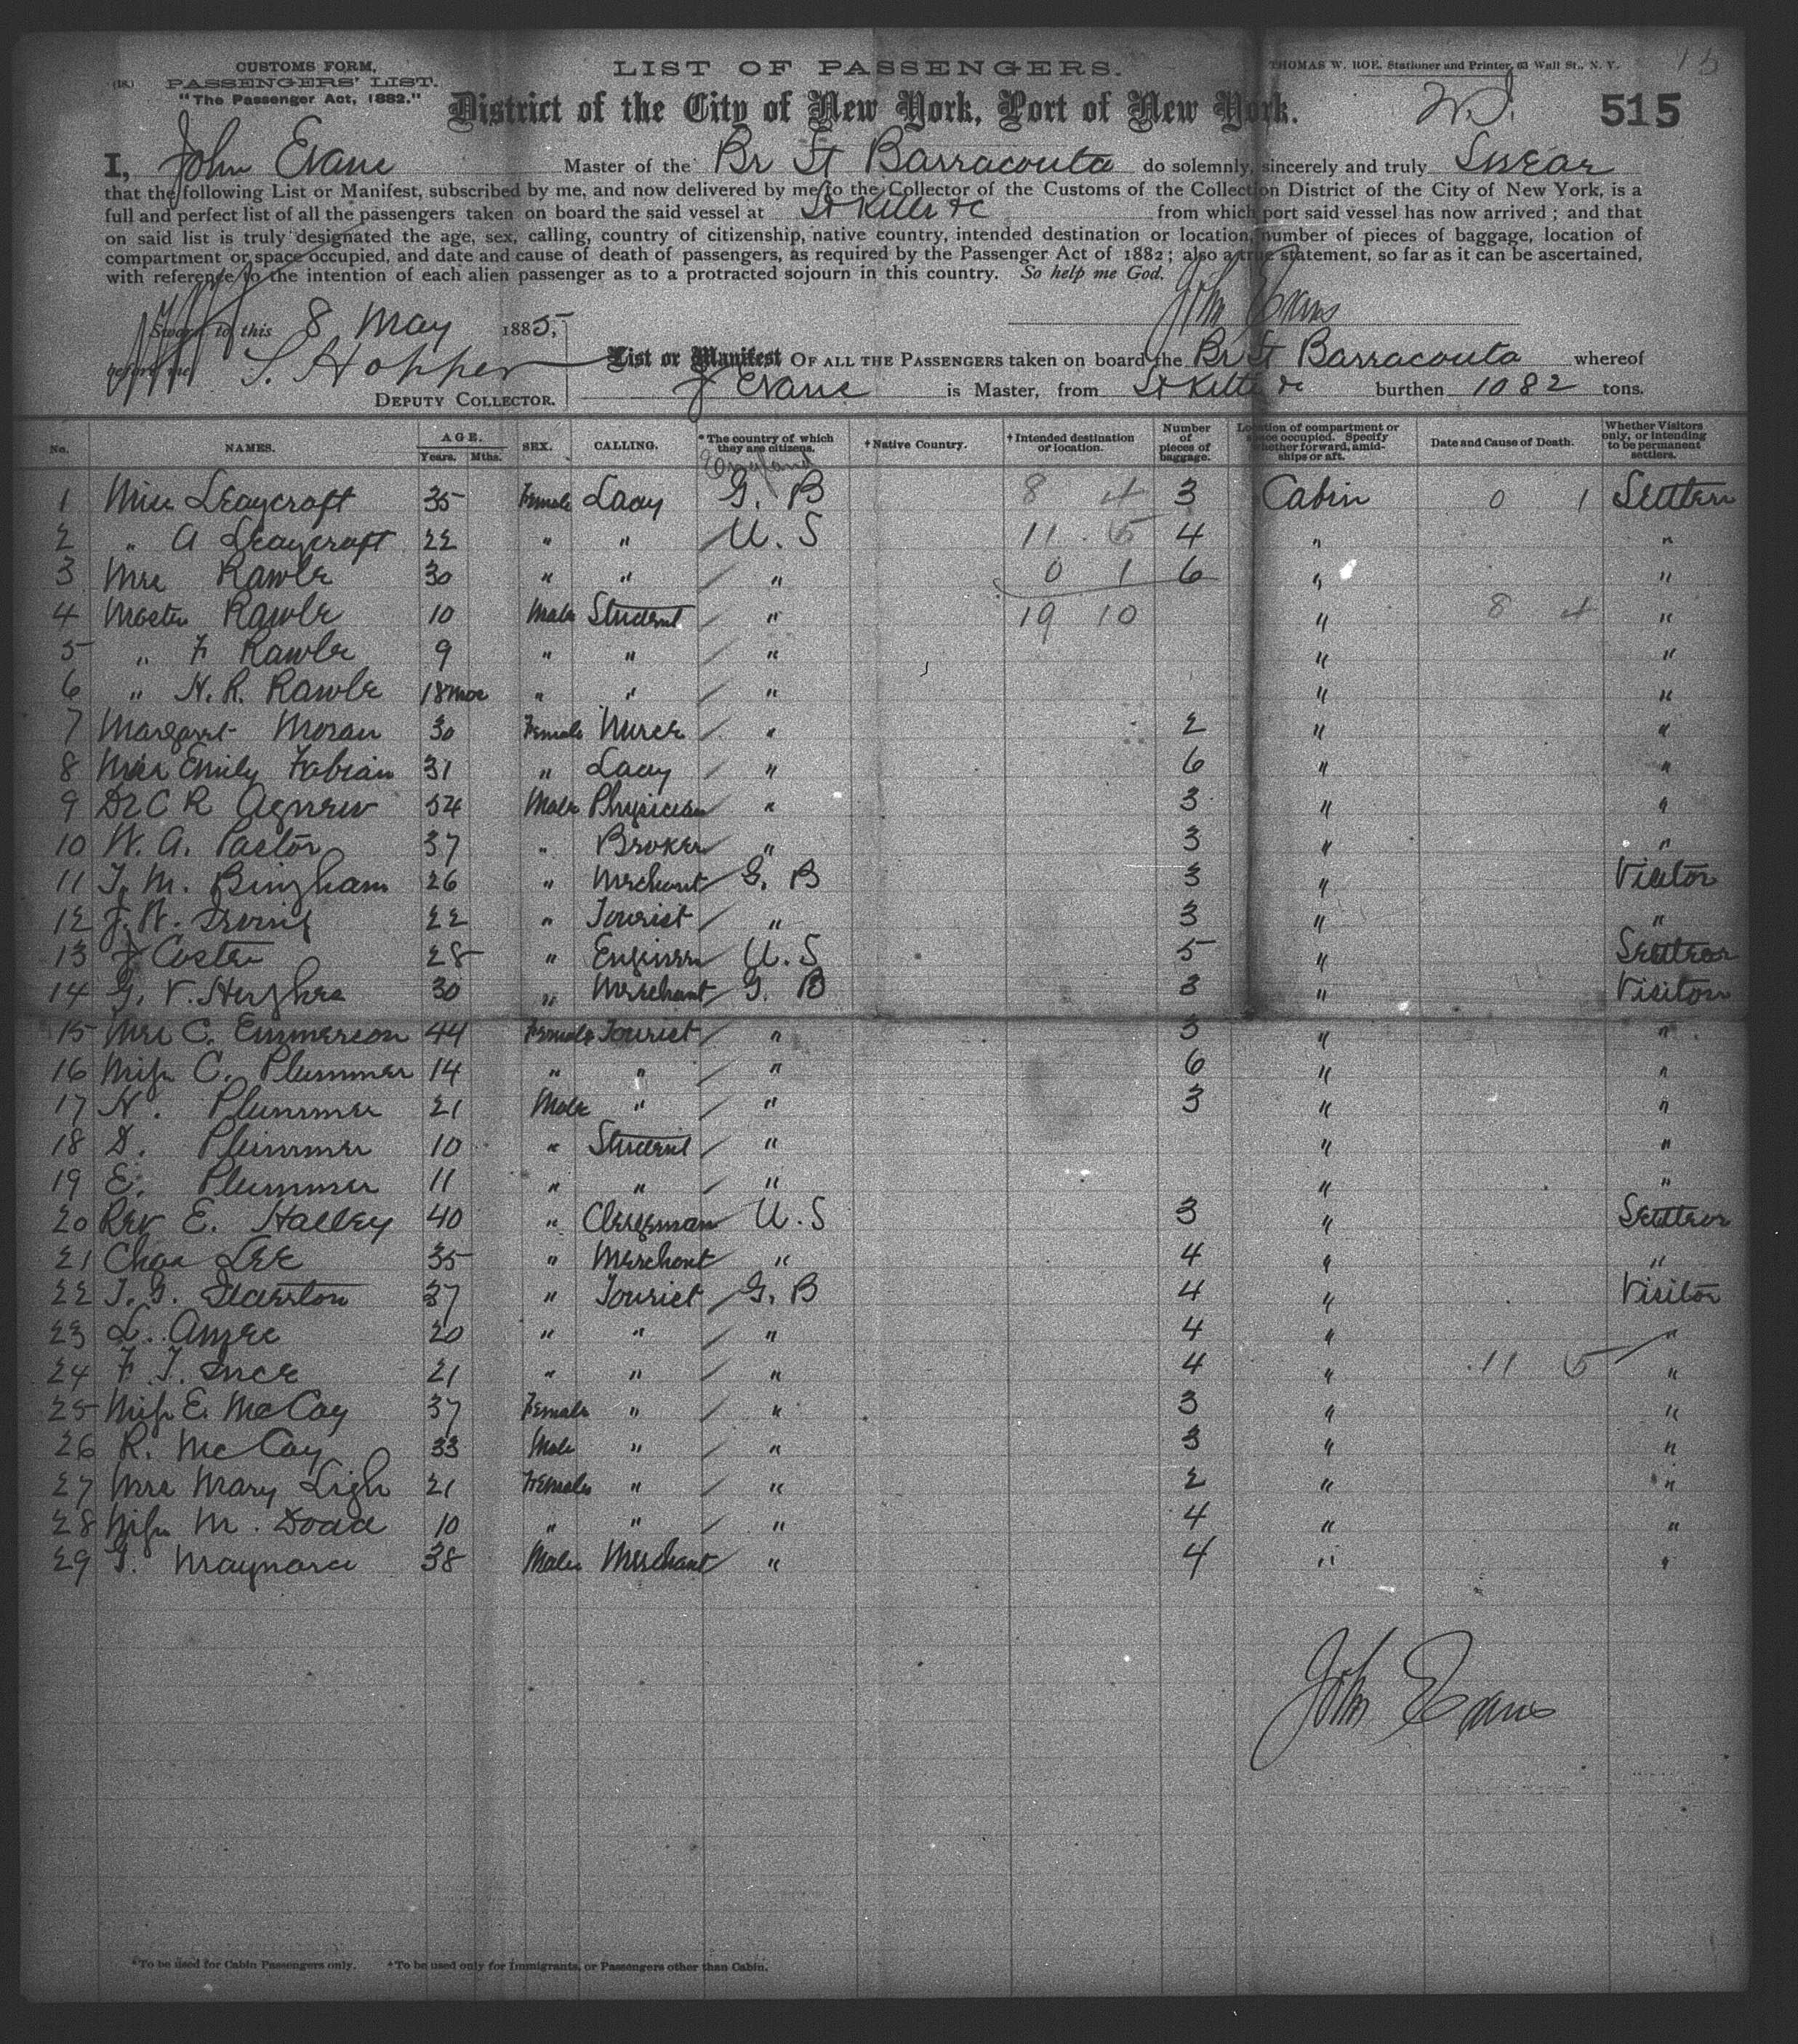 CUSTOMS FORM,
(18.) PASSENGERS' LIST.
"The Passenger Act, 1882."
LIST OF PASSENGERS.
THOMAS W. ROE, Stationer and Printer, 63 Wall St., N. Y.
District of the City of New York, Port of New York.
W.I.
515
I, John Evans Master of the Br St Barracouta do solemnly, sincerely and truly Swear
that the following List or Manifest, subscribed by me, and now delivered by me to the Collector of the Customs of the Collection District of the City of New York, is a
full and perfect list of all the passengers taken on board the said vessel at St Kitts &c from which port said vessel has now arrived ; and that
on said list is truly designated the age, sex, calling, country of citizenship, native country, intended destination or location, number of pieces of baggage, location of
compartment or space occupied, and date and cause of death of passengers, as required by the Passenger Act of 1882 ; also a true statement, so far as it can be ascertained,
with reference to the intention of each alien passenger as to a protracted sojourn in this country. So help me God.
John Evans
Sworn to this 8 May 1885,
before me S. Hopper
DEPUTY COLLECTOR.
List or Manifest OF ALL THE PASSENGERS taken on board the Br St Barracouta whereof
J Evans is Master, from St Kitts &c burthen 1082 tons.
No. NAMES. AGE. Years. Mths. SEX. CALLING. *The country of which they are citizens. †Native Country. †Intended destination or location. Number of pieces of baggage. Location of compartment or space occupied. Specify whether forward, amidships or aft. Date and Cause of Death. Whether Visitors only, or intending to be permanent settlers.
England
1 Miss Leaycraft 35 Female Lady G. B 8 4 3 Cabin 0 1 Settlers
2 " A Leaycraft 22 " " U. S 11 5 4 " "
3 Mrs Rawle 30 " " " 0 1 6 " "
4 Master Rawle 10 Male Student " 19 10 " 8 4 "
5 " F Rawle 9 " " " " "
6 " H. R. Rawle 18 mos " " " " "
7 Margaret Moran 30 Female Nurse " 2 " "
8 Miss Emily Fabian 31 " Lady " 6 " "
9 Dr C R Agnew 54 Male Physician " 3 " "
10 W. A. Pastor 37 " Broker " 3 " "
11 T. M. Bingham 26 " Merchant G. B 3 " Visitor
12 J. W. Irving 22 " Tourist " 3 " "
13 J Coster 28 " Engineer U. S 5 " Settlers
14 G. V. Hughes 30 " Merchant G. B 3 " Visitors
15 Mrs C. Emmerson 44 Female Tourist " 3 " "
16 Miss C. Plummer 14 " " " 6 " "
17 H. Plummer 21 Male " " 3 " "
18 D. Plummer 10 " Student " " "
19 E. Plummer 11 " " " " "
20 Rev E. Halley 40 " Clergyman U. S 3 " Settlers
21 Chas Lee 35 " Merchant " 4 " "
22 T. G. 37 " Tourist G. B 4 " Visitor
23 L. 20 " " " 4 " "
24 F. T. Ince 21 " " " 4 " 11 5 "
25 Miss E. McCay 37 Female " " 3 " "
26 R. McCay 33 Male " " 3 " "
27 Mrs Mary Ligh 21 Female " " 2 " "
28 Miss M. Dodd 10 " " " 4 " "
29 G. Maynard 38 Male Merchant " 4 " "
John Evans
*To be used for Cabin Passengers only. †To be used only for Immigrants, or Passengers other than Cabin.